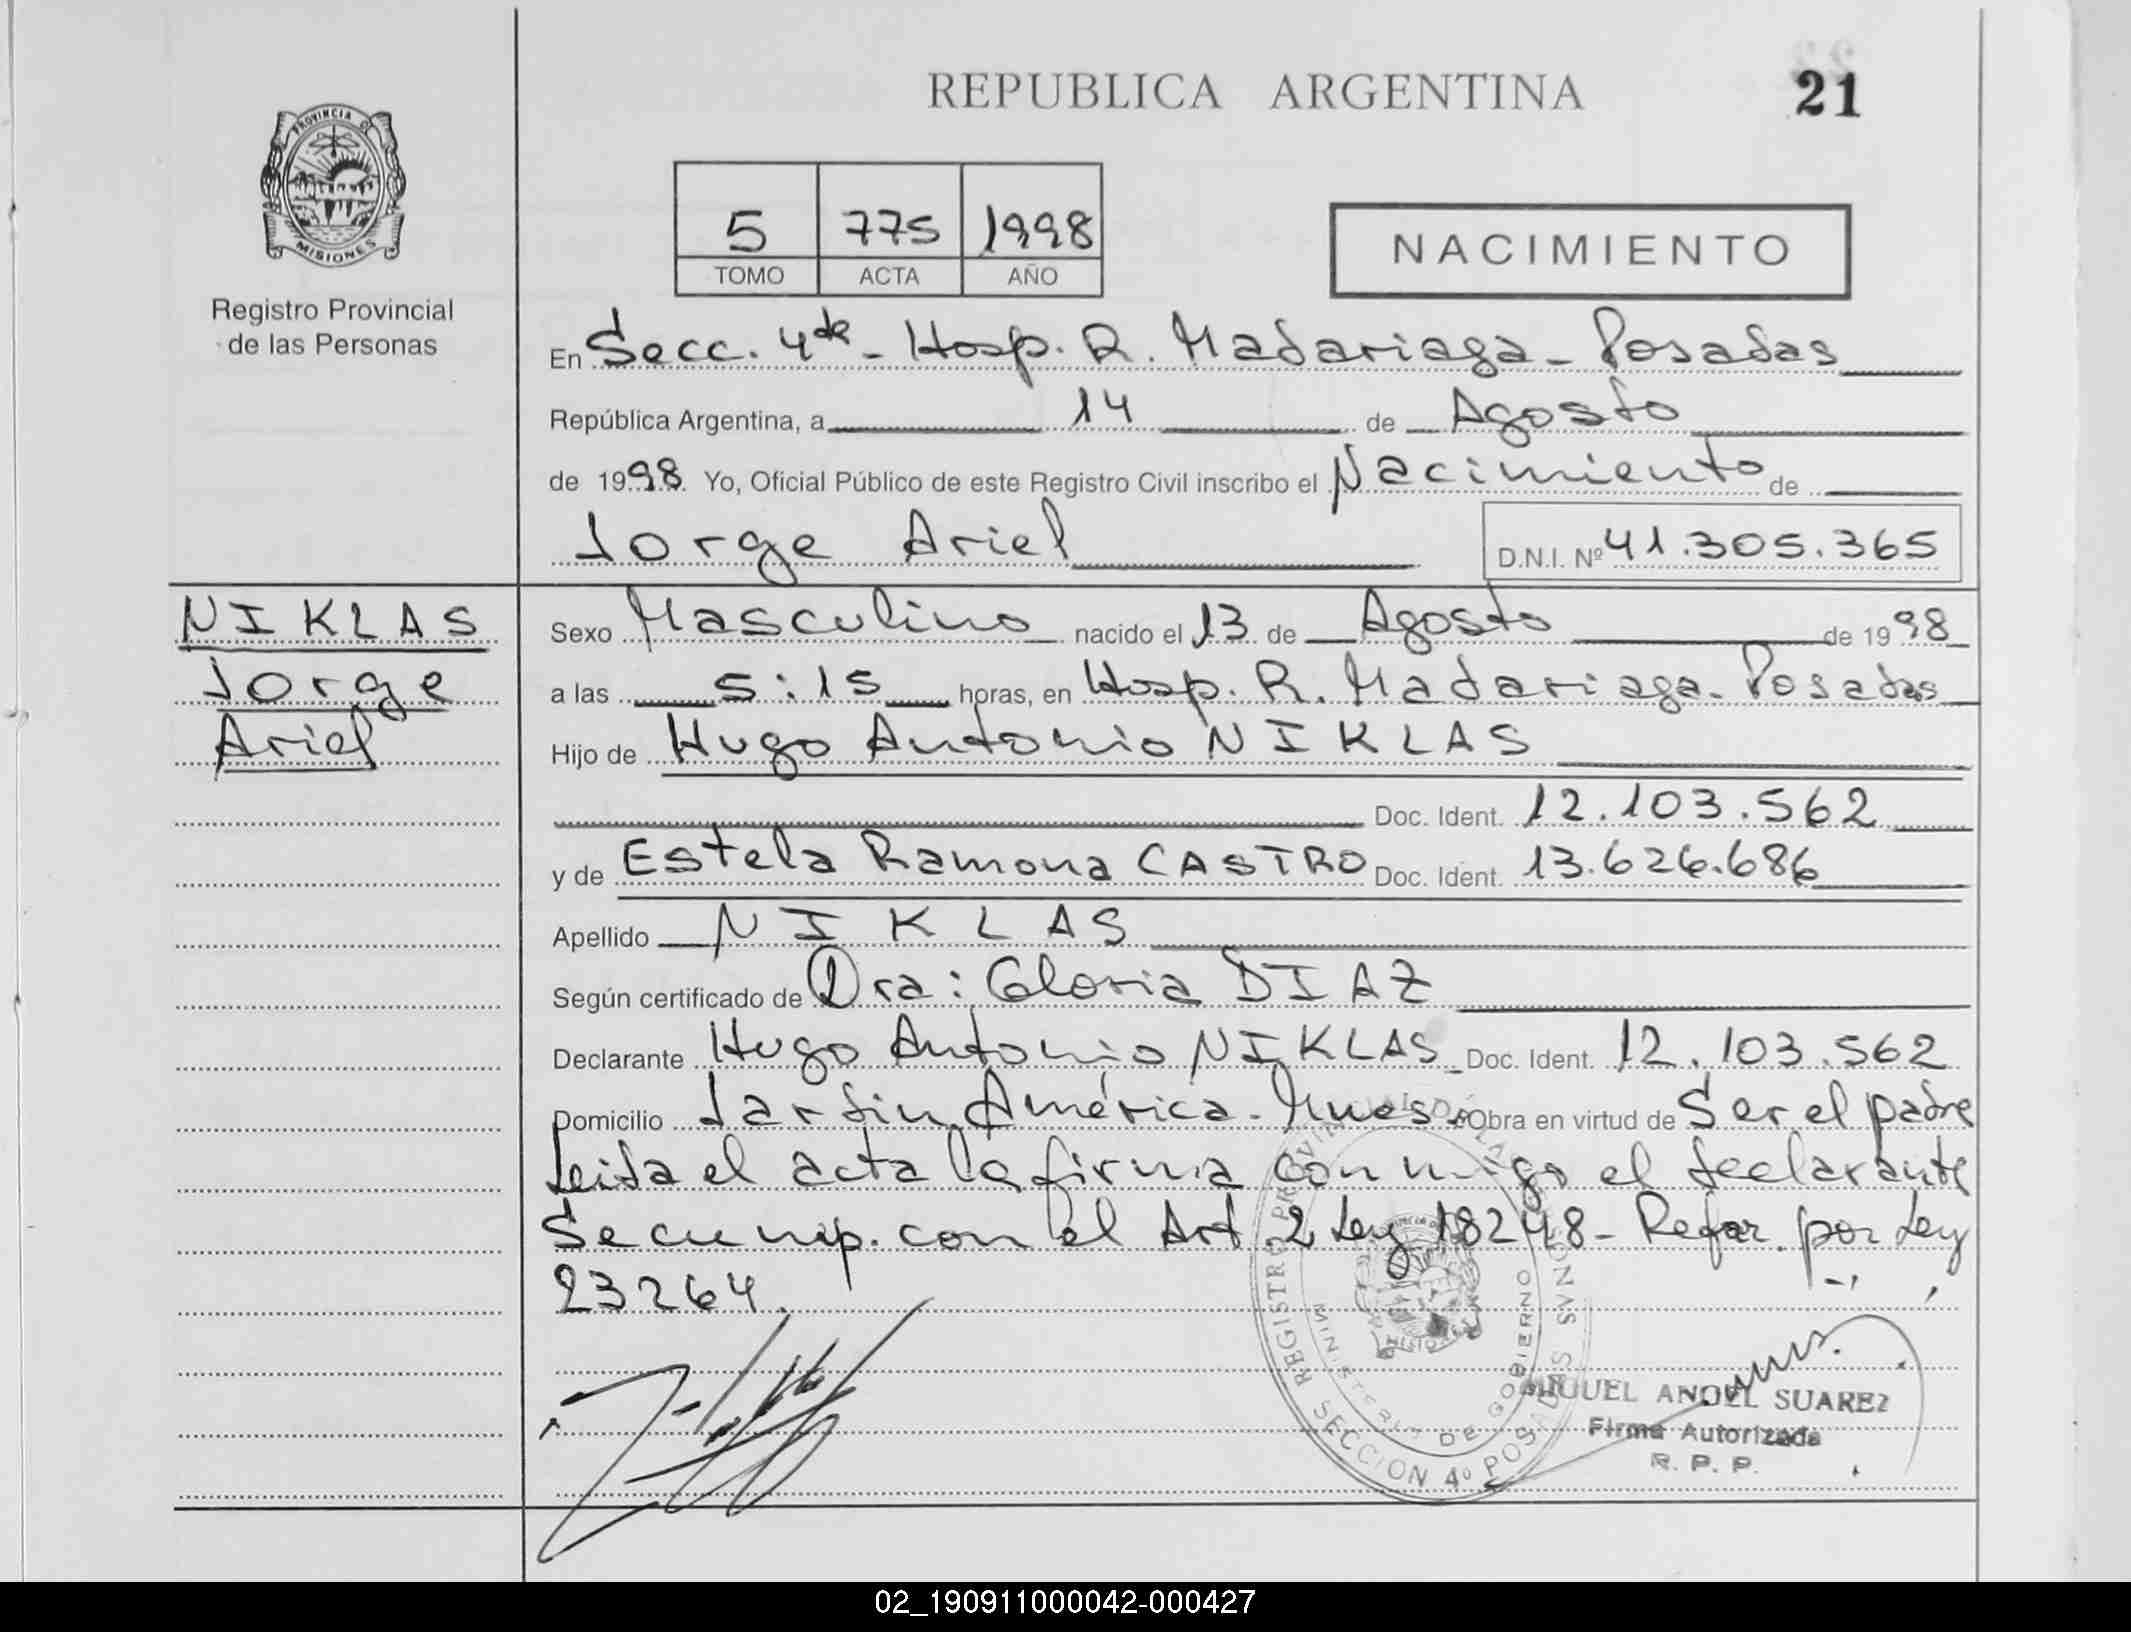 REPUBLICA ARGENTINA
21
PROVINCIA DE
MISIONES
Registro Provincial
de las Personas
5 775 1998
TOMO ACTA AÑO
NACIMIENTO
En Secc. 4ta - Hosp. R. Madariaga - Posadas
República Argentina, a 14 de Agosto
de 1998 Yo, Oficial Público de este Registro Civil inscribo el Nacimiento de
Jorge Ariel D.N.I. Nº 41.305.365
NIKLAS
Jorge
Ariel
Sexo Masculino nacido el 13 de Agosto de 1998
a las 5:15 horas, en Hosp. R. Madariaga - Posadas
Hijo de Hugo Antonio NIKLAS
Doc. Ident. 12.103.562
y de Estela Ramona CASTRO Doc. Ident. 13.626.686
Apellido NIKLAS
Según certificado de Dra: Gloria DIAZ
Declarante Hugo Antonio NIKLAS Doc. Ident. 12.103.562
Domicilio Jardin América - Mnes Obra en virtud de Ser el padre
Leida el acta la firma conmigo el declarante
Se cump. con el Art 2 Ley 18248 - Refor. por Ley
23264.
REGISTRO PROVINCIAL DE LAS PERSONAS
MINISTERIO DE GOBIERNO
SECCION 4º POSADAS
MIGUEL ANGEL SUAREZ
Firma Autorizada
R. P. P.
02_190911000042-000427